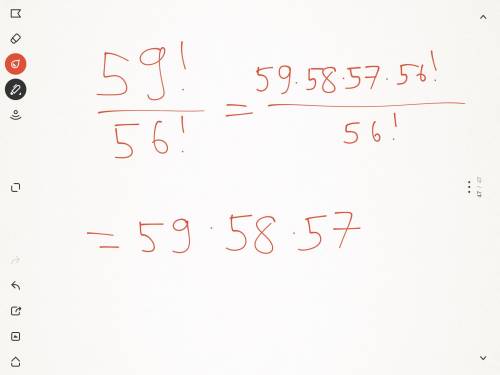 59! / 56! = 59·58·57·56! / 56!
= 59·58·57
47 / 47